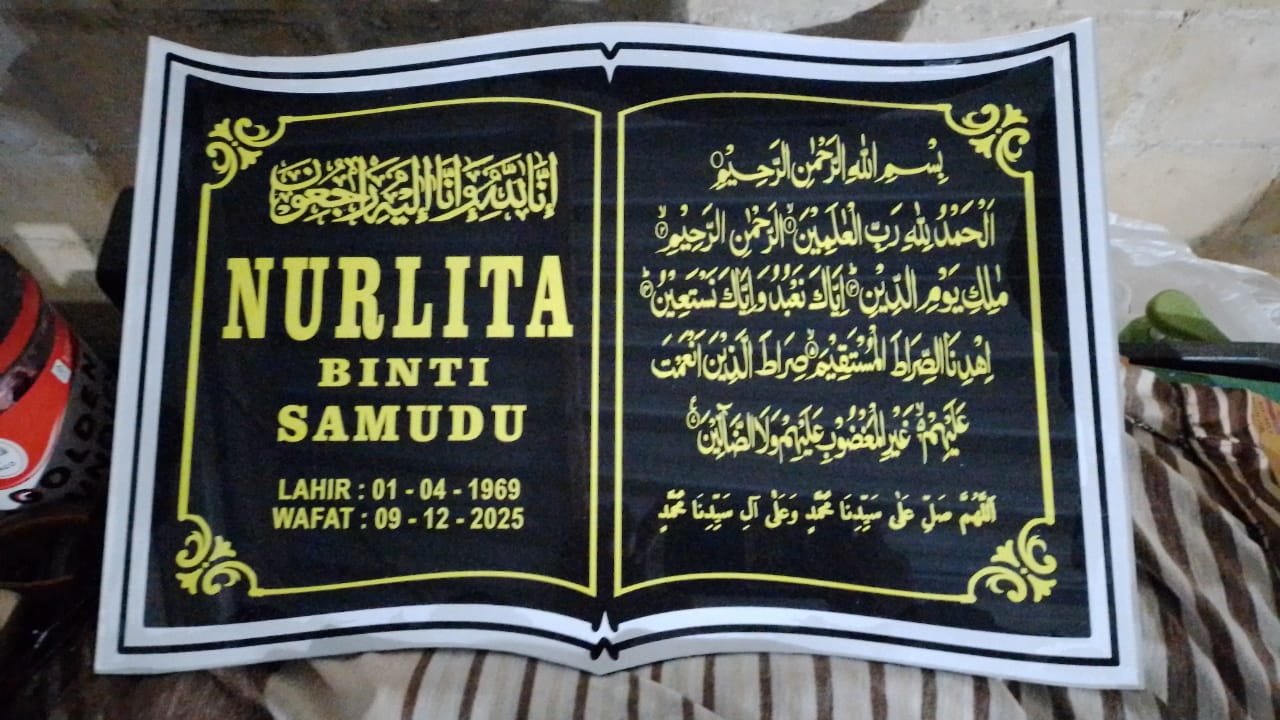 إِنَّا لِلَّهِ وَإِنَّا إِلَيْهِ رَاجِعُونَ
NURLITA
BINTI
SAMUDU
LAHIR : 01 - 04 - 1969
WAFAT : 09 - 12 - 2025
بِسْمِ اللهِ الرَّحْمٰنِ الرَّحِيْمِ ۝
اَلْحَمْدُ لِلّٰهِ رَبِّ الْعٰلَمِيْنَ ۝١ الرَّحْمٰنِ الرَّحِيْمِ ۝٢
مٰلِكِ يَوْمِ الدِّيْنِ ۝٣ اِيَّاكَ نَعْبُدُ وَاِيَّاكَ نَسْتَعِيْنُ ۝٤
اِهْدِنَا الصِّرَاطَ الْمُسْتَقِيْمَ ۝٥ صِرَاطَ الَّذِيْنَ اَنْعَمْتَ
عَلَيْهِمْ ۝٦ غَيْرِ الْمَغْضُوْبِ عَلَيْهِمْ وَلَا الضَّآلِّيْنَ
اَللّٰهُمَّ صَلِّ عَلٰى سَيِّدِنَا مُحَمَّدٍ وَعَلٰى آلِ سَيِّدِنَا مُحَمَّدٍ
GOLDEN